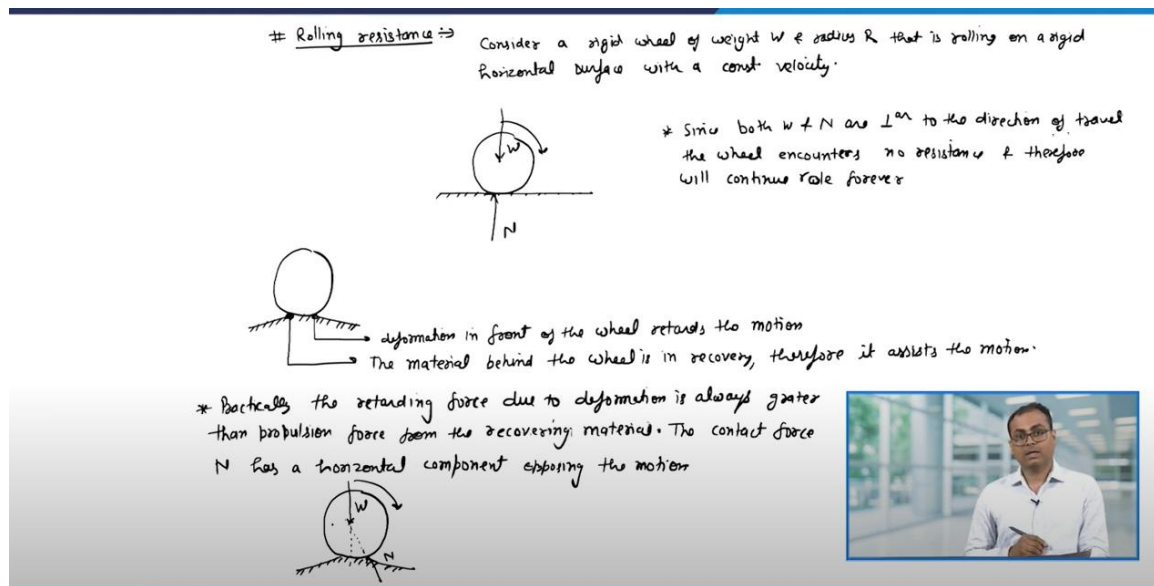 # Rolling resistance ⇒
Consider a rigid wheel of weight W & radius R that is rolling on a rigid
horizontal surface with a const velocity.
W
N
* Sinu both W & N are ⊥ar to the direction of travel
the wheel encounters no resistance & therefore
will continue role forever
deformation in front of the wheel retards the motion
The material behind the wheel is in recovery, therefore it assists the motion.
* Practically the retarding force due to deformation is always grater
than propulsion force from the recovering material. The contact force
N has a horizontal component opposing the motion
W
N